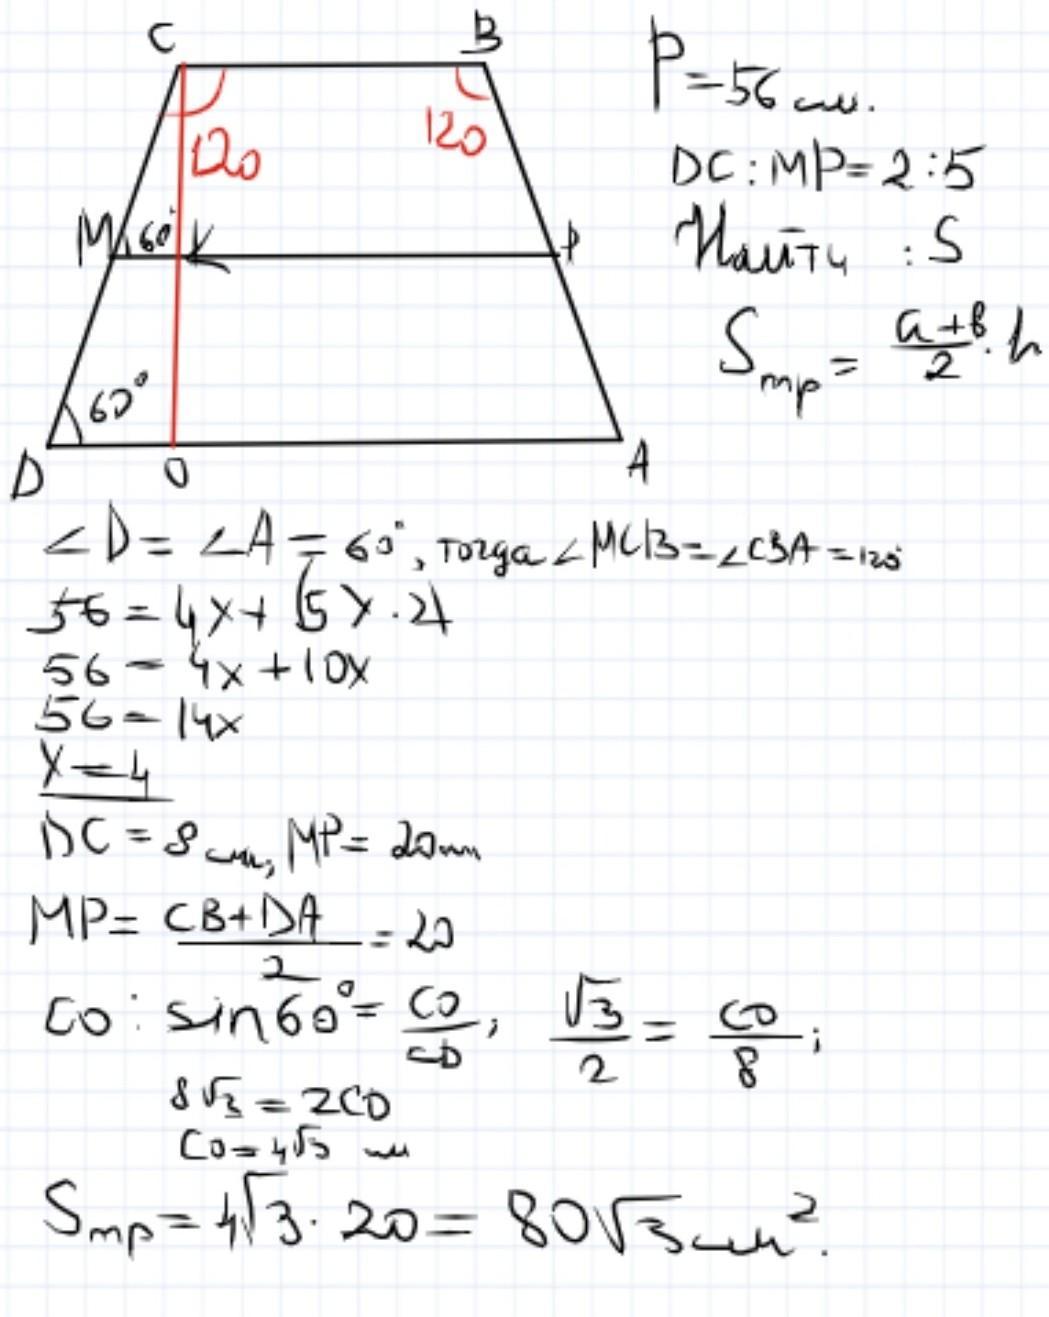 C B
120 120
M 60° K P
60°
D O A
P=56 см.
DC:MP=2:5
Найти : S
Sтр = (a+b)/2 · h
∠D = ∠A = 60°, тогда ∠MCB = ∠CBA = 120°
56 = 4x + (5x·2)
56 = 4x + 10x
56 = 14x
x = 4
DC = 8 см, MP = 20 см
MP = (CB + DA)/2 = 20
CO : sin60° = CO/CD; √3/2 = CO/8;
8√3 = 2CO
CO = 4√3 см
Sтр = 4√3 · 20 = 80√3 см².